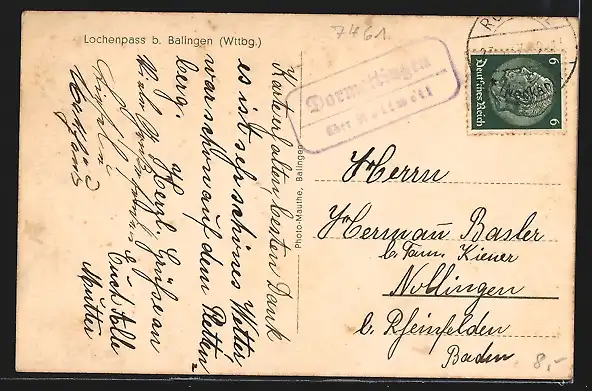 Lochenpass b. Balingen (Wttbg.)
7461.
Dormettingen
über Rottweil
Deutsches Reich
6
6
Photo-Mauthe, Balingen
Karte erhalten besten Dank
es ist sehr schönes Wetter,
war schon auf dem Pletten=
berg. Herzl. Grüße an
Euch Alle
Mutter
Herrn
Herman̄ Basler
b. Fam. Kiener
Nollingen
b. Rheinfelden
Baden
8,-